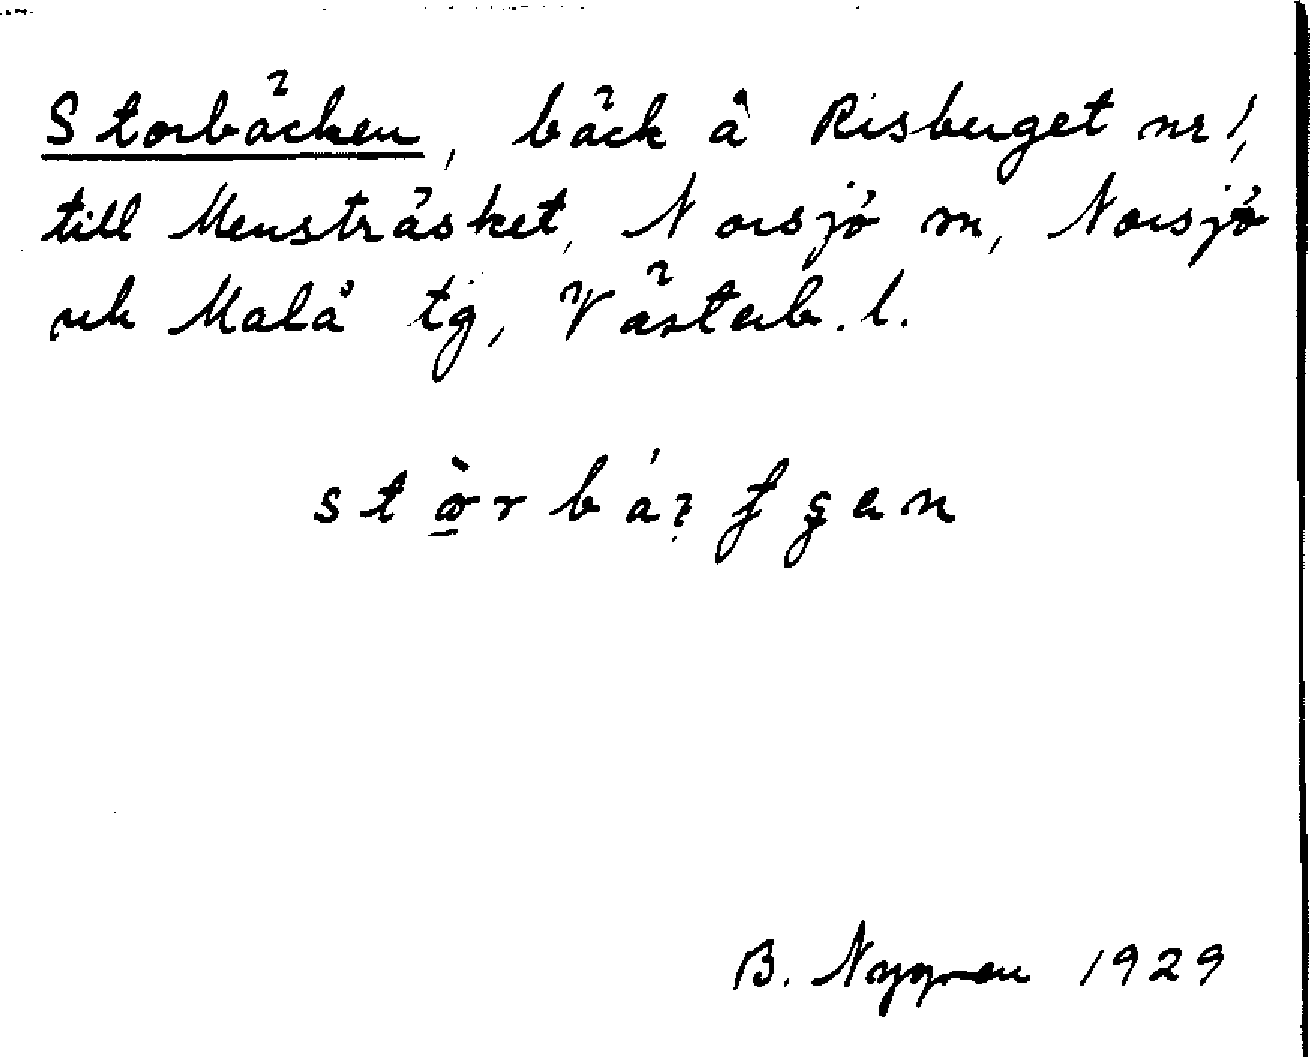 Storbäcken, bäck å Risberget nr 1,
till Mensträsket, Norsjö sn, Norsjö
och Malå tg, Västerb. l.
B. Nygren 1929